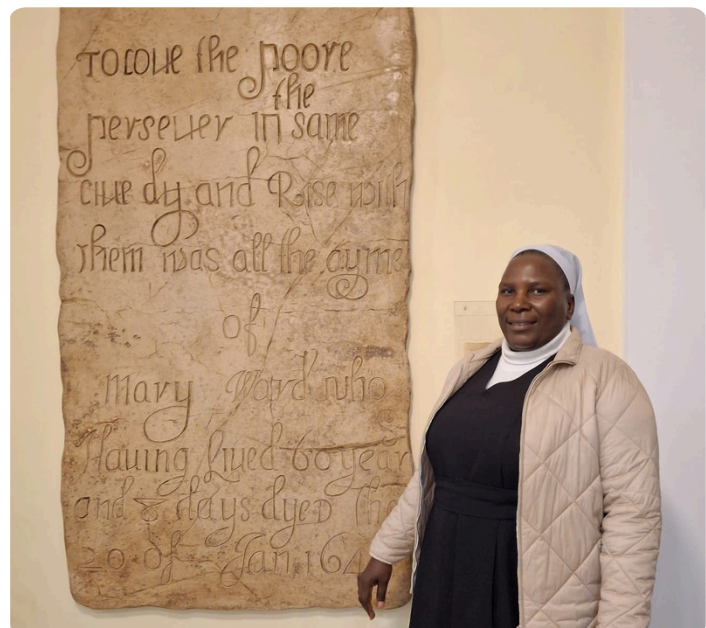 TO LOVE the poore
the
persever IN same
LIVE dy and Rise with
them was all the ayme
of
Mary Ward who
Having Lived 60 year
and 8 days dyed the
20 of Jan 164